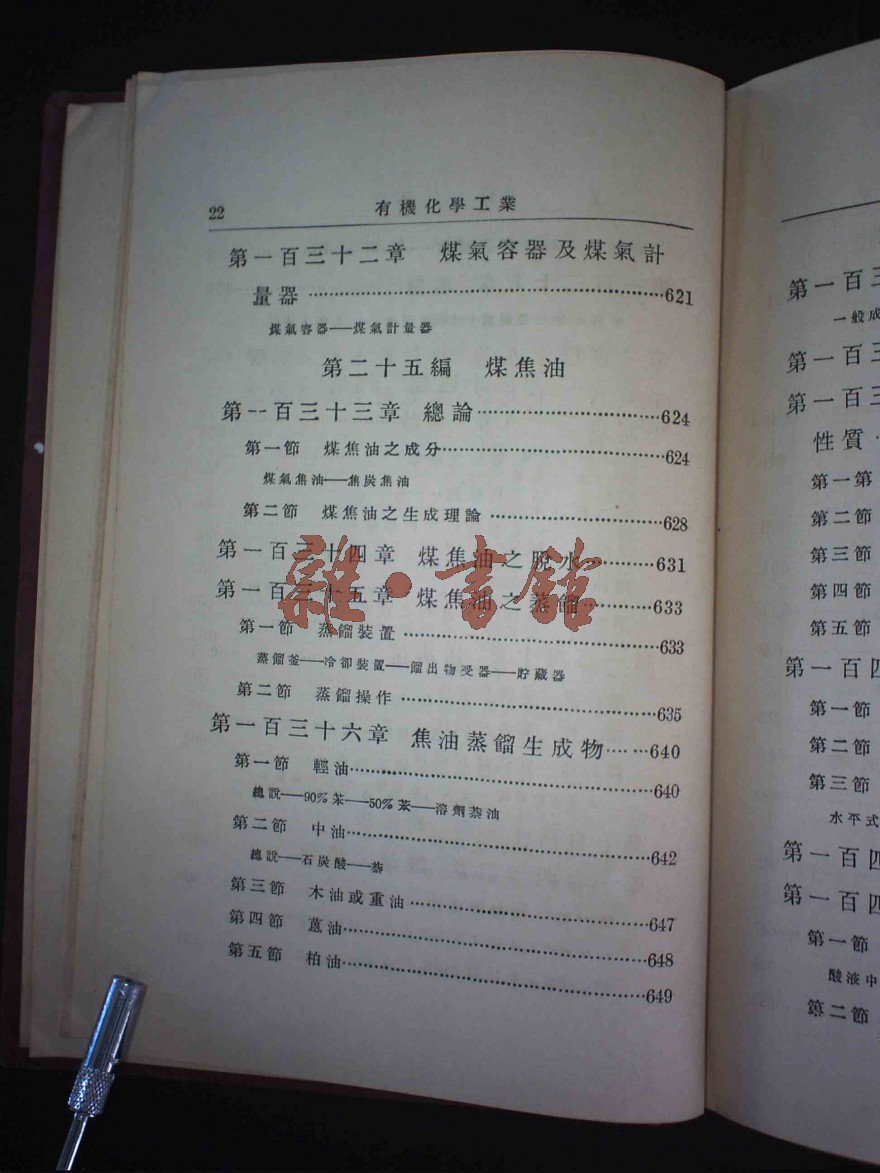 22 有機化學工業
第一百三十二章 煤氣容器及煤氣計
量器……621
煤氣容器——煤氣計量器
第二十五編 煤焦油
第一百三十三章 總論……624
第一節 煤焦油之成分……624
煤氣焦油——焦炭焦油
第二節 煤焦油之生成理論……628
第一百三十四章 煤焦油之脫水……631
第一百三十五章 煤焦油之蒸餾……633
第一節 蒸餾裝置……633
蒸餾釜——冷卻裝置——餾出物受器——貯藏器
第二節 蒸餾操作……635
第一百三十六章 焦油蒸餾生成物……640
第一節 輕油……640
總說——90%苯——50%苯——溶劑蒸油
第二節 中油……642
總說——石炭酸——萘
第三節 木油或重油……647
第四節 蒽油……648
第五節 柏油……649
雜·書館
第一百三
一般成
第一百三
第一百三
性質
第一第
第二節
第三節
第四節
第五節
第一百四
第一節
第二節
第三節
水平式
第一百四
第一百四
第一節
酸液中
第二節